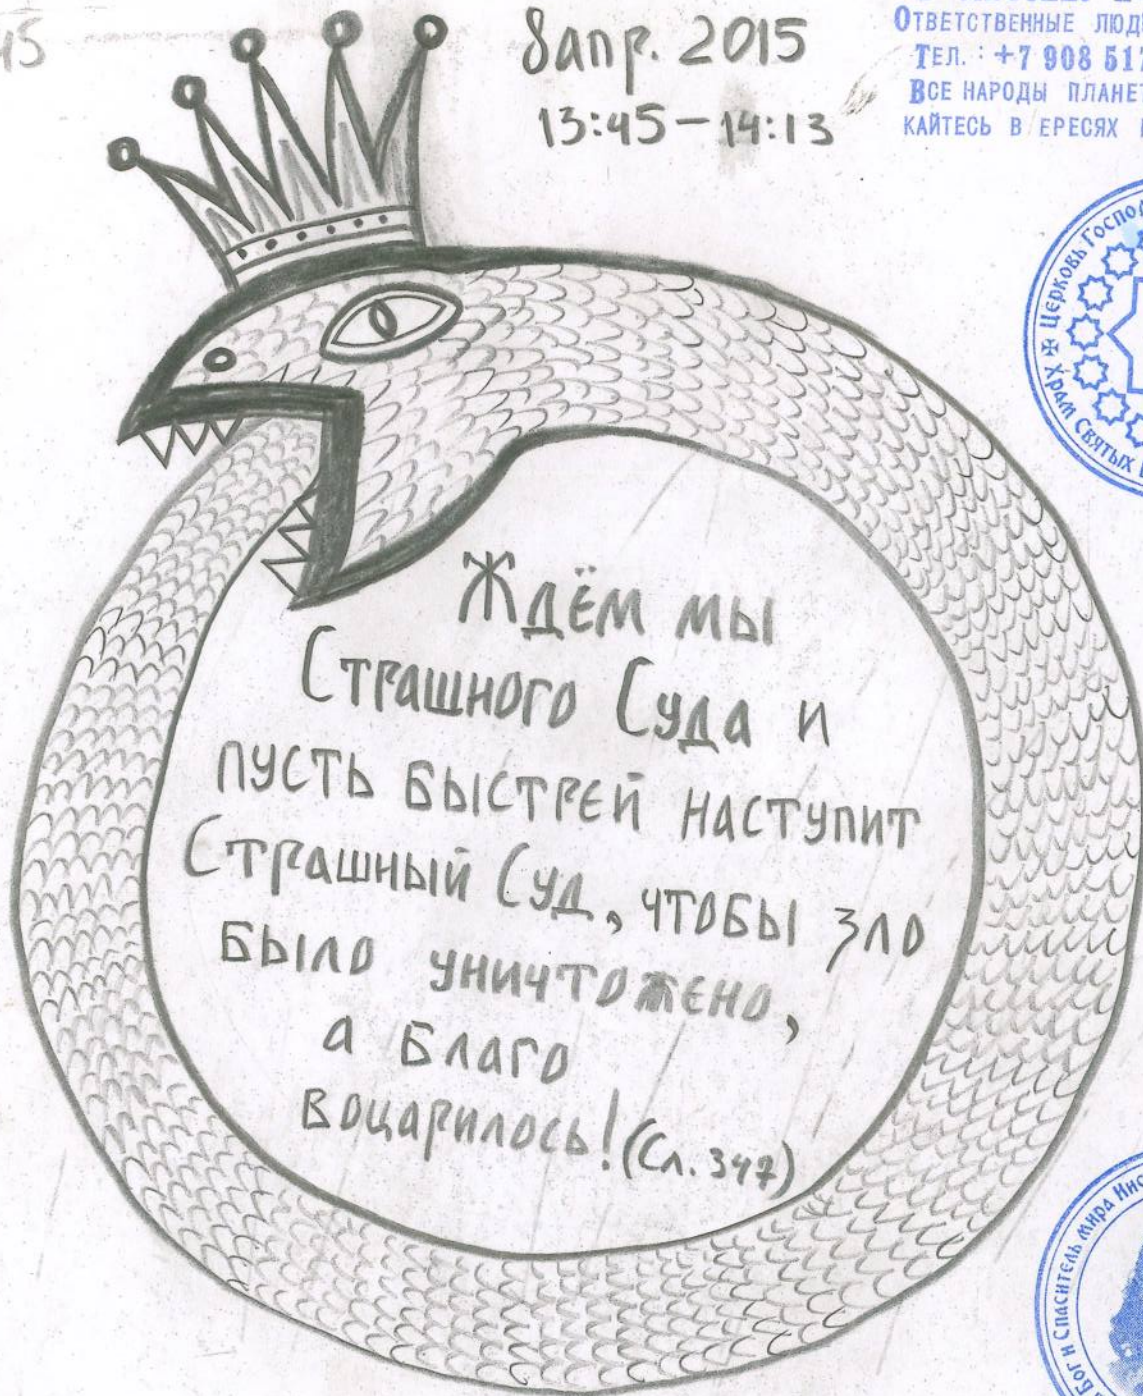 15
8 апр. 2015
13:45 – 14:13
ОТВЕТСТВЕННЫЕ
ТЕЛ.: +7 908
ВСЕ НАРОДЫ
КАЙТЕСЬ В ЕРЕСЯХ
✠ ЦЕРКОВЬ
ХРАМ СВЯТЫХ
Ждём мы
Страшного Суда и
пусть быстрей наступит
Страшный Суд, чтобы зло
было уничтожено,
а Благо
воцарилось! (Сл. 347)
БОГ И СПАСИТЕЛЬ МИРА